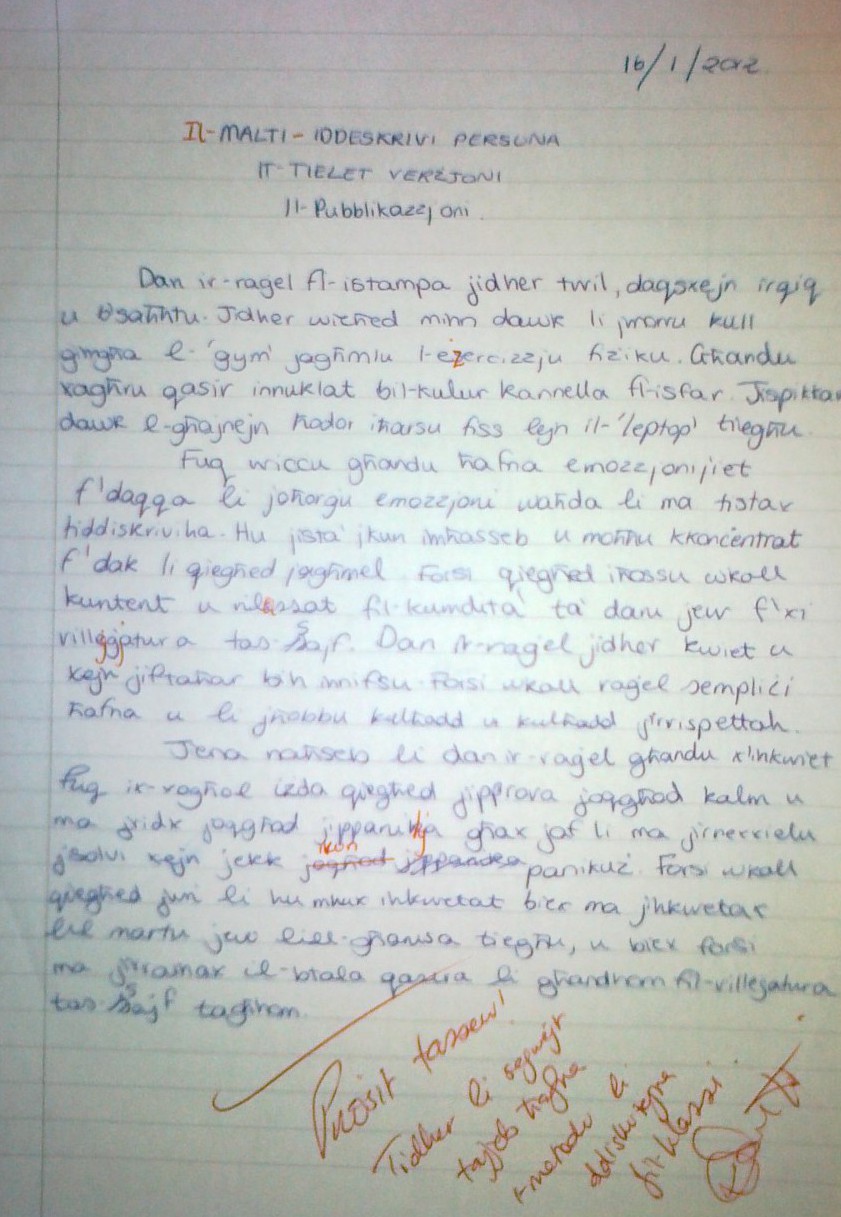 16/1/2012
Il-MALTI - IDDESKRIVI PERSUNA
IT-TIELET VERŻJONI
Il-Pubblikazzjoni.
Dan ir-raġel fl-istampa jidher twil, daqsxejn irqiq
u b'saħħtu. Jidher wieħed minn dawk li jmorru kull
ġimgħa l-'gym' jagħmlu l-eżercizzju fiżiku. Għandu
xagħru qasir innuklat bil-kulur kannella fl-isfar. Jispikkaw
dawk l-għajnejn ħodor iħarsu fiss lejn il-'leptop' tiegħu.
Fuq wiċċu għandu ħafna emozzjonijiet
f'daqqa li joħorġu emozzjoni waħda li ma tistax
tiddiskriviha. Hu jista' jkun imħasseb u moħħu kkonċentrat
f'dak li qiegħed jagħmel. Forsi qiegħed iħossu wkoll
kuntent u rilassat fil-kumdità ta' daru jew f'xi
villeġġjatura tas-Sajf. Dan ir-raġel jidher kwiet u
xejn jiftaħar bih innifsu. Forsi wkoll raġel sempliċi
ħafna u li jħobbu kulħadd u kulħadd jirrispettah.
Jiena naħseb li dan ir-raġel għandu x'inkwiet
fuq ix-xogħol iżda qiegħed jipprova joqgħod kalm u
ma jridx joqgħod jippanikja għax jaf li ma jirnexxielu
jsolvi xejn jekk ikun joqgħod panikuż. Forsi wkoll
qiegħed juri li hu mhux inkwetat biex ma jinkwetax
lil martu jew lill-għarusa tiegħu, u biex forsi
ma jirramax il-btala qasira li għandhom fil-villeġatura
tas-Sajf tagħhom.
Prosit tassew!
Tidher li segwejt
tajjeb ħafna
l-metodu li
ddiskutejna
fil-klassi.